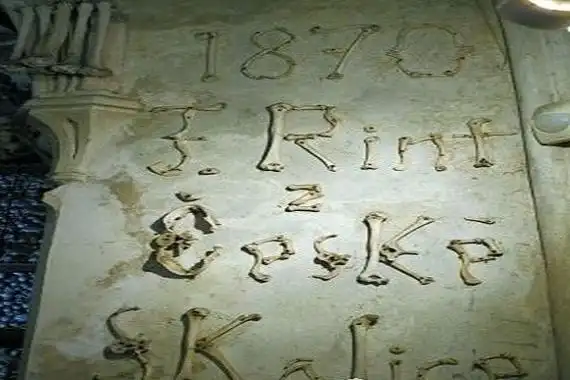 1870
F. Rint
z
ČesKé
SKalice